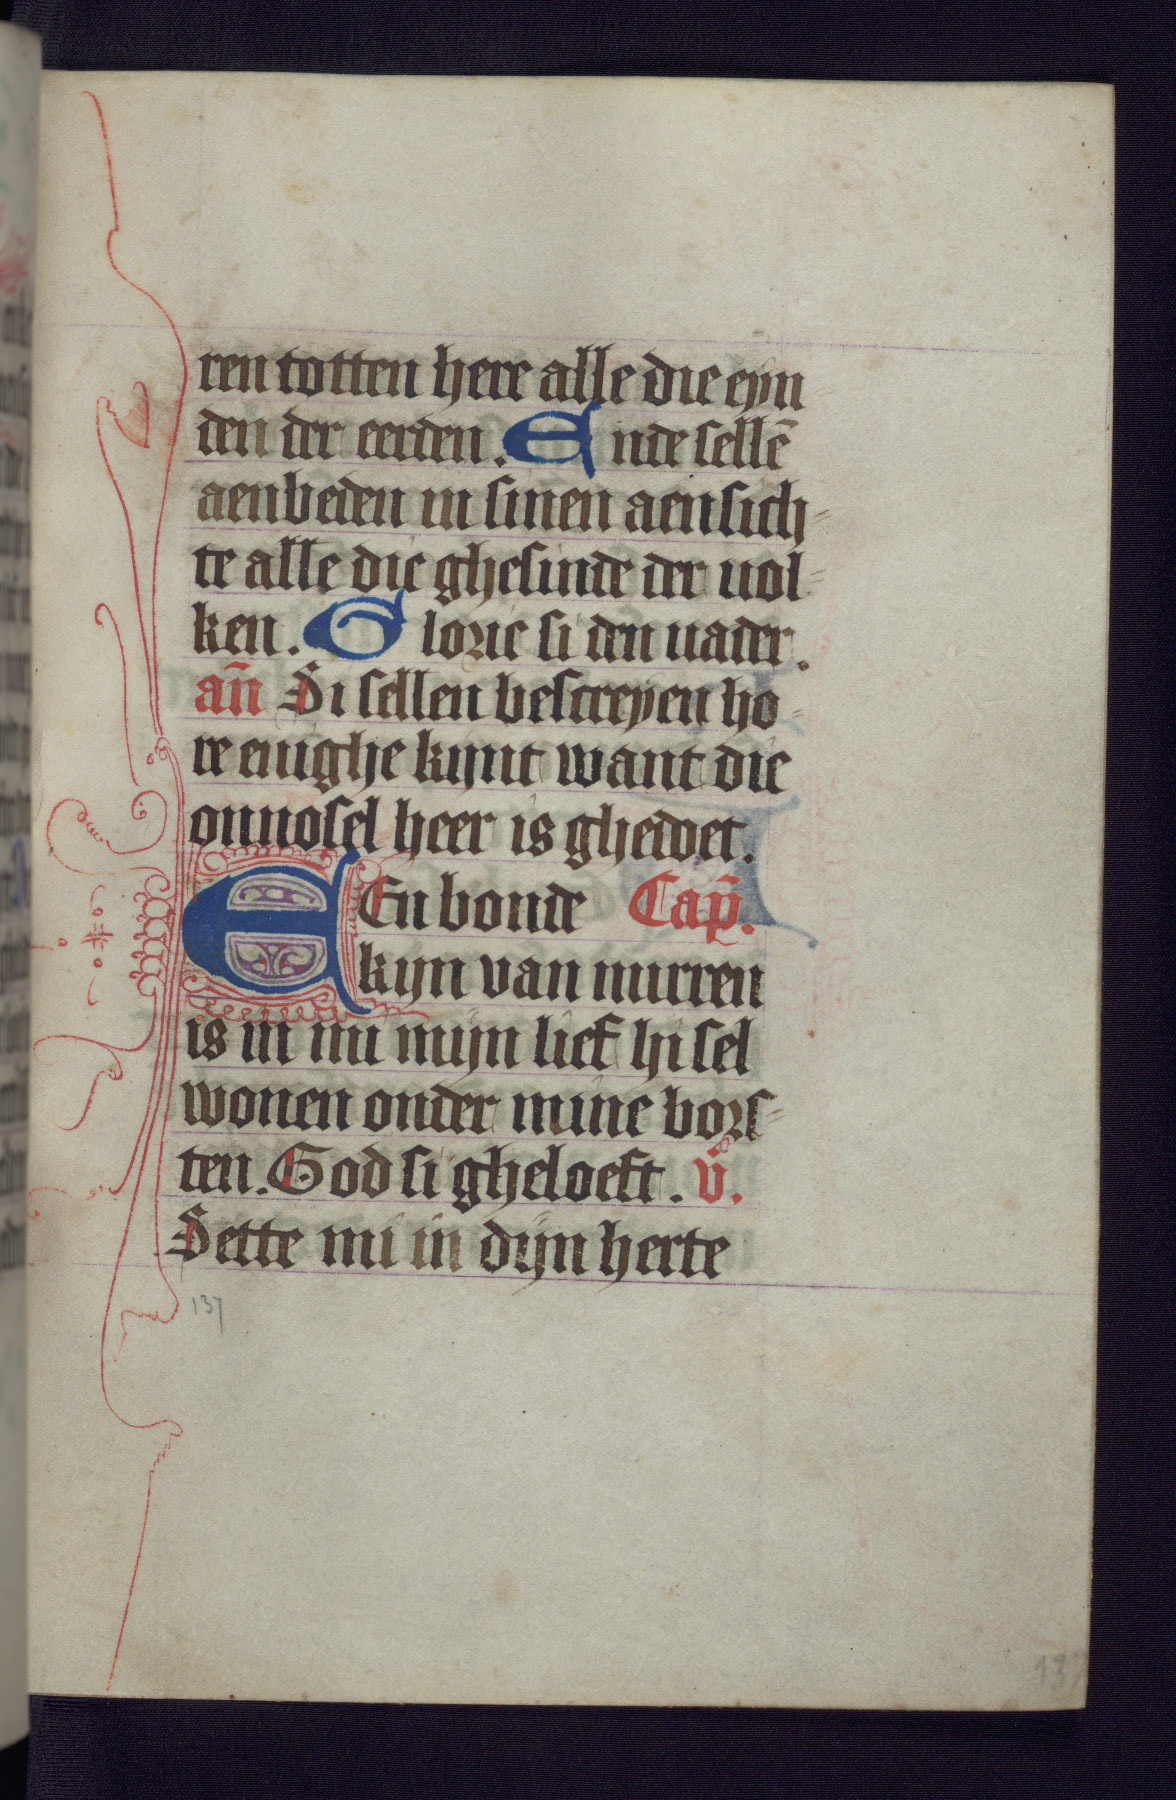 ren totten here alle die eyn
den der eerden. Ende sellē
aenbeden in sinen aensich
te alle die ghesinde der uol
ken. Glorie si den uader.
an̄ Si sellen bescreyen ho
re enighe kijnt want die
onnosel heer is ghedoet.
EEn bonde Cap̄.
kijn van mirren
is in mi mijn lief hi sel
wonen onder mine bors
ten. God si gheloeft. v̄.
Sette mi in dijn herte
137
137